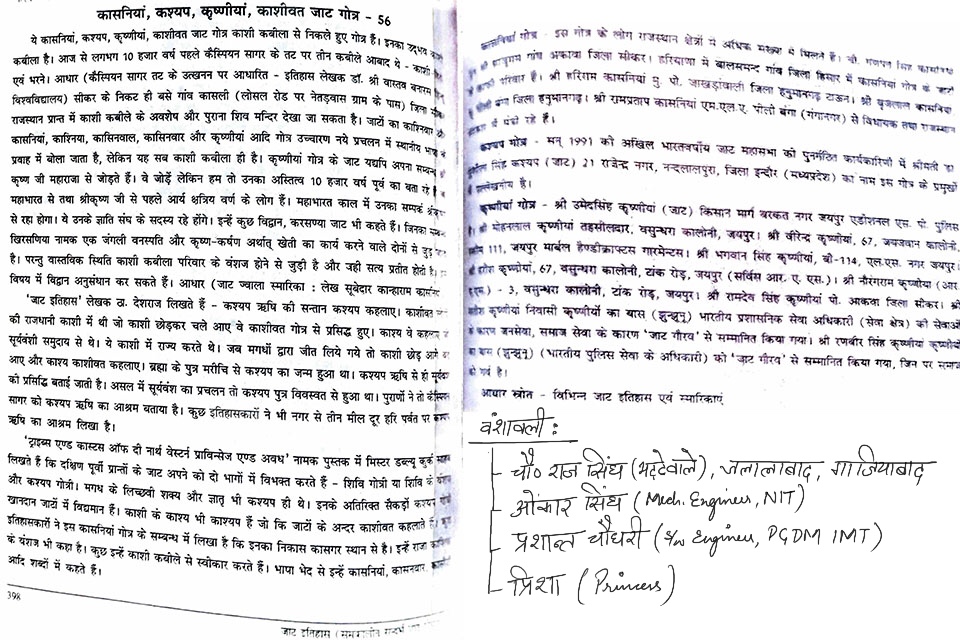 कासनियां, कश्यप, कृष्णीयां, काशीवत जाट गोत्र - 56
ये कासनियां, कश्यप, कृष्णीयां, काशीवत जाट गोत्र काशी कबीला से निकले हुए गोत्र हैं। इनका उद्भव
कबीला है। आज से लगभग 10 हजार वर्ष पहले कैस्पियन सागर के तट पर तीन कबीले आबाद थे - काशी
एवं भरने। आधार (कैस्पियन सागर तट के उत्खनन पर आधारित - इतिहास लेखक डॉ. श्री वास्तव बनारस
विश्वविद्यालय) सीकर के निकट ही बसे गांव कासली (लोसल रोड पर नेतड़वास ग्राम के पास) जिला
राजस्थान प्रान्त में काशी कबीले के अवशेष और पुराना शिव मन्दिर देखा जा सकता है। जाटों का काशिनवार
कासनियां, काशिनया, कासिनवाल, कासिनवार और कृष्णीयां आदि गोत्र उच्चारण नये प्रचलन में स्थानीय भाषा
प्रवाह में बोला जाता है, लेकिन यह सब काशी कबीला ही है। कृष्णीयां गोत्र के जाट यद्यपि अपना सम्बन्ध
कृष्ण जी महाराजा से जोड़ते हैं। वे जोड़ें लेकिन हम तो उनका अस्तित्व 10 हजार वर्ष पूर्व का बता रहे हैं
महाभारत से तथा श्रीकृष्ण जी से पहले आर्य क्षत्रिय वर्ण के लोग हैं। महाभारत काल में उनका सम्पर्क श्रीकृष्ण
से रहा होगा। ये उनके ज्ञाति संघ के सदस्य रहे होंगे। इन्हें कुछ विद्वान, करसणया जाट भी कहते हैं। जिनका
खिरसणिया नामक एक जंगली वनस्पति और कृष्ण-कर्षण अर्थात् खेती का कार्य करने वाले दोनों से जुड़
है। परन्तु वास्तविक स्थिति काशी कबीला परिवार के वंशज होने से जुड़ी है और यही सत्य प्रतीत होती है।
विषय में विद्वान अनुसंधान कर सकते हैं। आधार (जाट ज्वाला स्मारिका : लेख सूबेदार कान्हाराम
'जाट इतिहास' लेखक ठा. देशराज लिखते हैं - कश्यप ऋषि की सन्तान कश्यप कहलाए। काशीवत
की राजधानी काशी में थी जो काशी छोड़कर चले आए वे काशीवत गोत्र से प्रसिद्ध हुए। काश्य वे कहलाए
सूर्यवंशी समुदाय से थे। ये काशी में राज्य करते थे। जब मगधों द्वारा जीत लिये गये तो काशी छोड़ आये
आए और काश्य काशीवत कहलाए। ब्रह्मा के पुत्र मरीचि से कश्यप का जन्म हुआ था। कश्यप ऋषि से ही सूर्यवंश
को प्रसिद्धि बताई जाती है। असल में सूर्यवंश का प्रचलन तो कश्यप पुत्र विवस्वत से हुआ था। पुराणों ने तो
सागर को कश्यप ऋषि का आश्रम बताया है। कुछ इतिहासकारों ने भी नगर से तीन मील दूर हरि पर्वत पर कश्यप
ऋषि का आश्रम लिखा है।
'ट्राइब्स एण्ड कास्टस ऑफ दी नार्थ वेस्टर्न प्राविन्सेज एण्ड अवध' नामक पुस्तक में मिस्टर डब्ल्यू कुर्क
लिखते हैं कि दक्षिण पूर्वी प्रान्तों के जाट अपने को दो भागों में विभक्त करते हैं - शिवि गोत्री या शिवि के
और कश्यप गोत्री। मगध के लिच्छवी शक्य और ज्ञातृ भी कश्यप ही थे। इनके अतिरिक्त सैकड़ों कश्यप
खानदान जाटों में विद्यमान हैं। काशी के काश्य भी काश्यप हैं जो कि जाटों के अन्दर काशीवत कहलाते
इतिहासकारों ने इस कासनियां गोत्र के सम्बन्ध में लिखा है कि इनका निकास कासगर स्थान से है। इन्हें राजा
के वंशज भी कहा है। कुछ इन्हें काशी कबीले से स्वीकार करते हैं। भाषा भेद से इन्हें कासनियां, कासनवार,
आदि शब्दों में कहते हैं।
398
जाट इतिहास (समकालीन सन्दर्भ
कासनियां गोत्र - इस गोत्र के लोग राजस्थान क्षेत्रों में अधिक संख्या में मिलते हैं। चौ. गणपत सिंह कासनियां
गांव अकावा जिला सीकर। हरियाणा में बालसमन्द गांव जिला हिसार में कासनियां गोत्र के जाटों
के परिवार हैं। श्री हरिराम कासनियां मु. पो. जाखड़ांवाली जिला हनुमानगढ़ टाऊन। श्री बृजलाल कासनियां
जिला हनुमानगढ़। श्री रामप्रताप कासनियां एम.एल.ए. पीली बंगा (गंगानगर) से विधायक तथा राजस्थान
में मंत्री रहे हैं।
कश्यप गोत्र - सन् 1991 को अखिल भारतवर्षीय जाट महासभा की पुनर्गठित कार्यकारिणी में श्रीमती
सिंह कश्यप (जाट) 21 राजेन्द्र नगर, नन्दलालपुरा, जिला इन्दौर (मध्यप्रदेश) का नाम इस गोत्र के प्रमुखों
उल्लेखनीय है।
कृष्णीयां गोत्र - श्री उमेदसिंह कृष्णीयां (जाट) किसान मार्ग बरकत नगर जयपुर एडीशनल एस. पी. पुलिस
श्री मोहनलाल कृष्णीयां तहसीलदार, वसुन्धरा कालोनी, जयपुर। श्री वीरेन्द्र कृष्णीयां, 67, जयजवान कालोनी,
111, जयपुर मार्बल हैण्डीक्राफ्टस गारमेन्टस। श्री भगवान सिंह कृष्णीयां, बी-114, एल.एस. नगर जयपुर।
कृष्णीयां, 67, वसुन्धरा कालोनी, टांक रोड़, जयपुर (सर्विस आर. ए. एस.)। श्री नौरंगराम कृष्णीया (आर
- 3, वसुन्धरा कालोनी, टांक रोड़, जयपुर। श्री रामदेव सिंह कृष्णीयां पो. आकवा जिला सीकर। श्री
कृष्णीयां निवासी कृष्णीयों का बास (झुन्झुनू) भारतीय प्रशासनिक सेवा अधिकारी (सेवा क्षेत्र) की सेवाओं
कारण जनसेवा, समाज सेवा के कारण 'जाट गौरव' से सम्मानित किया गया। श्री रणबीर सिंह कृष्णीयां कृष्णीयों
का बास (झुन्झुनू) (भारतीय पुलिस सेवा के अधिकारी) को 'जाट गौरव' से सम्मानित किया गया, जिन पर समाज
को गर्व है।
आधार स्रोत - विभिन्न जाट इतिहास एवं स्मारिकाएं
वंशावली :
चौ० राज सिंघ (भट्टेवाले), जलालाबाद, गाजियाबाद
ओंकार सिंघ (Mech. Engineer, NIT)
प्रशान्त चौधरी (S/w Engineer, PGDM IMT)
प्रिशा (Princess)